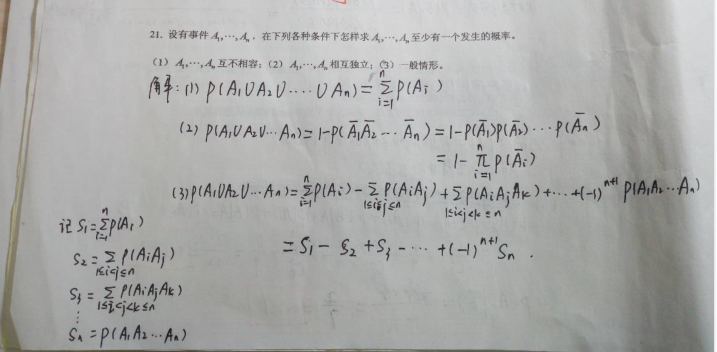 21. 设有事件 A₁,⋯,Aₙ，在下列各种条件下怎样求 A₁,⋯,Aₙ 至少有一个发生的概率。
（1）A₁,⋯,Aₙ 互不相容；（2）A₁,⋯,Aₙ 相互独立；（3）一般情形。
解：(1) P(A₁∪A₂∪⋯⋯∪Aₙ)=∑ⁿᵢ₌₁P(Aᵢ)
(2) P(A₁∪A₂∪⋯Aₙ)=1-P(Ā₁Ā₂⋯Āₙ)=1-P(Ā₁)P(Ā₂)⋯P(Āₙ)
=1-πⁿᵢ₌₁P(Āᵢ)
(3) P(A₁∪A₂∪⋯Aₙ)=∑ⁿᵢ₌₁P(Aᵢ)-∑_{1≤i<j≤n}P(AᵢAⱼ)+∑_{1≤i<j<k≤n}P(AᵢAⱼAₖ)+⋯+(-1)ⁿ⁺¹P(A₁A₂⋯Aₙ)
=S₁-S₂+S₃-⋯+(-1)ⁿ⁺¹Sₙ.
记 S₁=∑ⁿᵢ₌₁P(Aᵢ)
S₂=∑_{1≤i<j≤n}P(AᵢAⱼ)
S₃=∑_{1≤i<j<k≤n}P(AᵢAⱼAₖ)
⋮
Sₙ=P(A₁A₂⋯Aₙ)